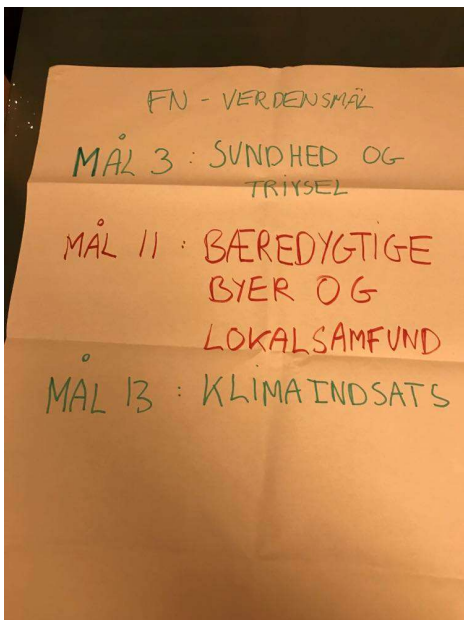 FN - VERDENSMÅL
MÅL 3 : SUNDHED OG
TRIVSEL
MÅL 11 : BÆREDYGTIGE
BYER OG
LOKALSAMFUND
MÅL 13 : KLIMAINDSATS